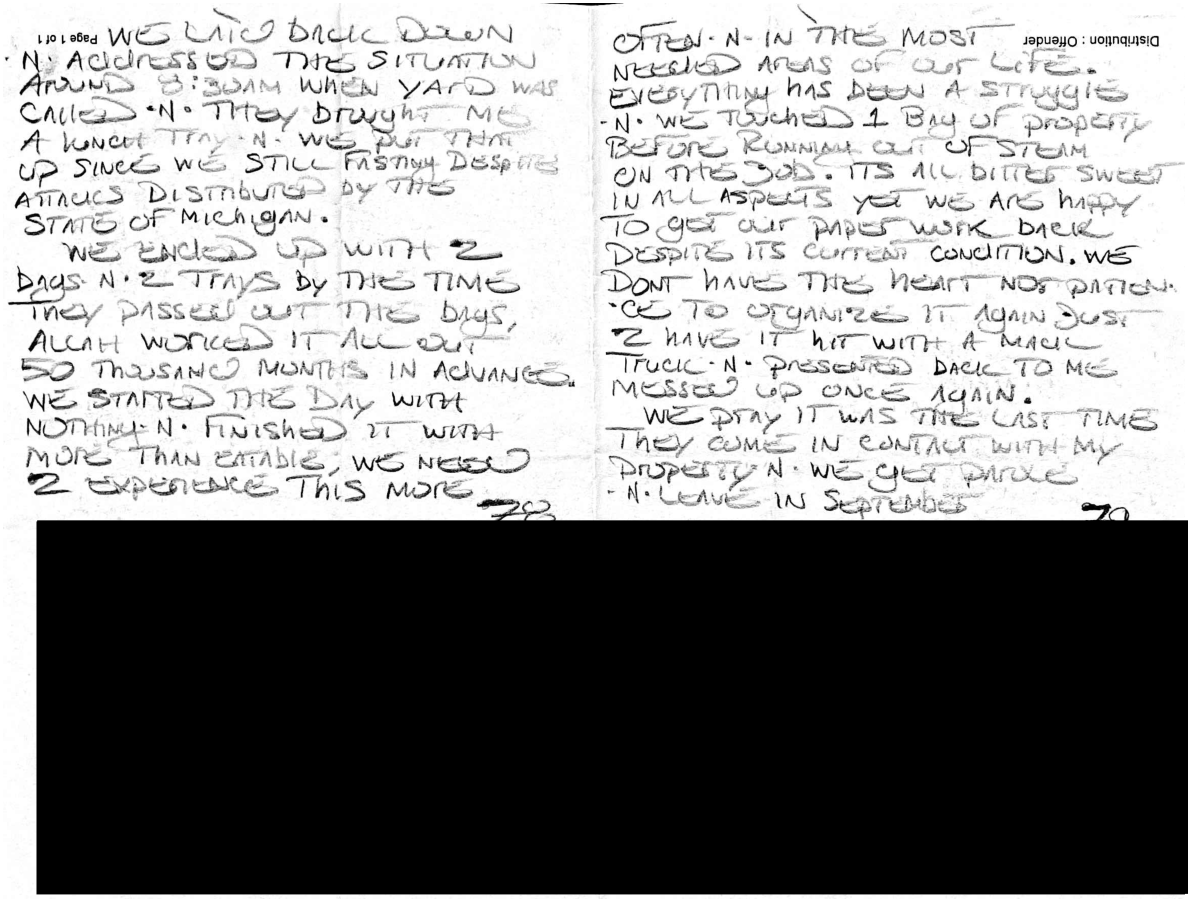 Page 1 of 1
WE LAID BACK DOWN
·N· ADDRESSED THE SITUATION
AROUND 8:30AM WHEN YARD WAS
CALLED ·N· THEY brought ME
A LUNCH TRAY ·N· WE PUT THAT
UP SINCE WE STILL FASTING DESPITE
ATTACKS DISTRIBUTED by THE
STATE OF MICHIGAN.
WE ENDED UP WITH 2
bAgs ·N· 2 TRAYS by THE TIME
THEY PASSED OUT THE bAgs,
ALLAH WORKED IT ALL OUT
50 THOUSAND MONTHS IN ADVANCE.
WE STARTED THE DAY WITH
NOTHING ·N· FINISHED IT WITH
MORE THAN EATABLE, WE NEED
2 EXPERIENCE THIS MORE
78
Distribution : Offender
OFTEN ·N· IN THE MOST
NEEDED AREAS OF OUR LIFE.
EVERYTHING hAS BEEN A STRUGGLE
·N· WE TOUCHED 1 BAg OF PROPERTY
BEFORE RUNNING OUT OF STEAM
ON THE JOB. ITS ALL BITTER SWEET
IN ALL ASPECTS YET WE ARE hAPPY
TO gET OUR PAPER WORK BACK
DESPITE ITS CURRENT CONDITION. WE
DONT hAVE THE HEART NOR PATIEN·
·CE TO ORGANIZE IT AGAIN JUST
2 HAVE IT hIT WITH A MACK
TRUCK ·N· PRESENTED BACK TO ME
MESSED UP ONCE AGAIN.
WE PRAY IT WAS THE LAST TIME
THEY COME IN CONTACT WITH MY
PROPERTY ·N· WE gET PAROLE
·N· LEAVE IN SEPTEMBER
79